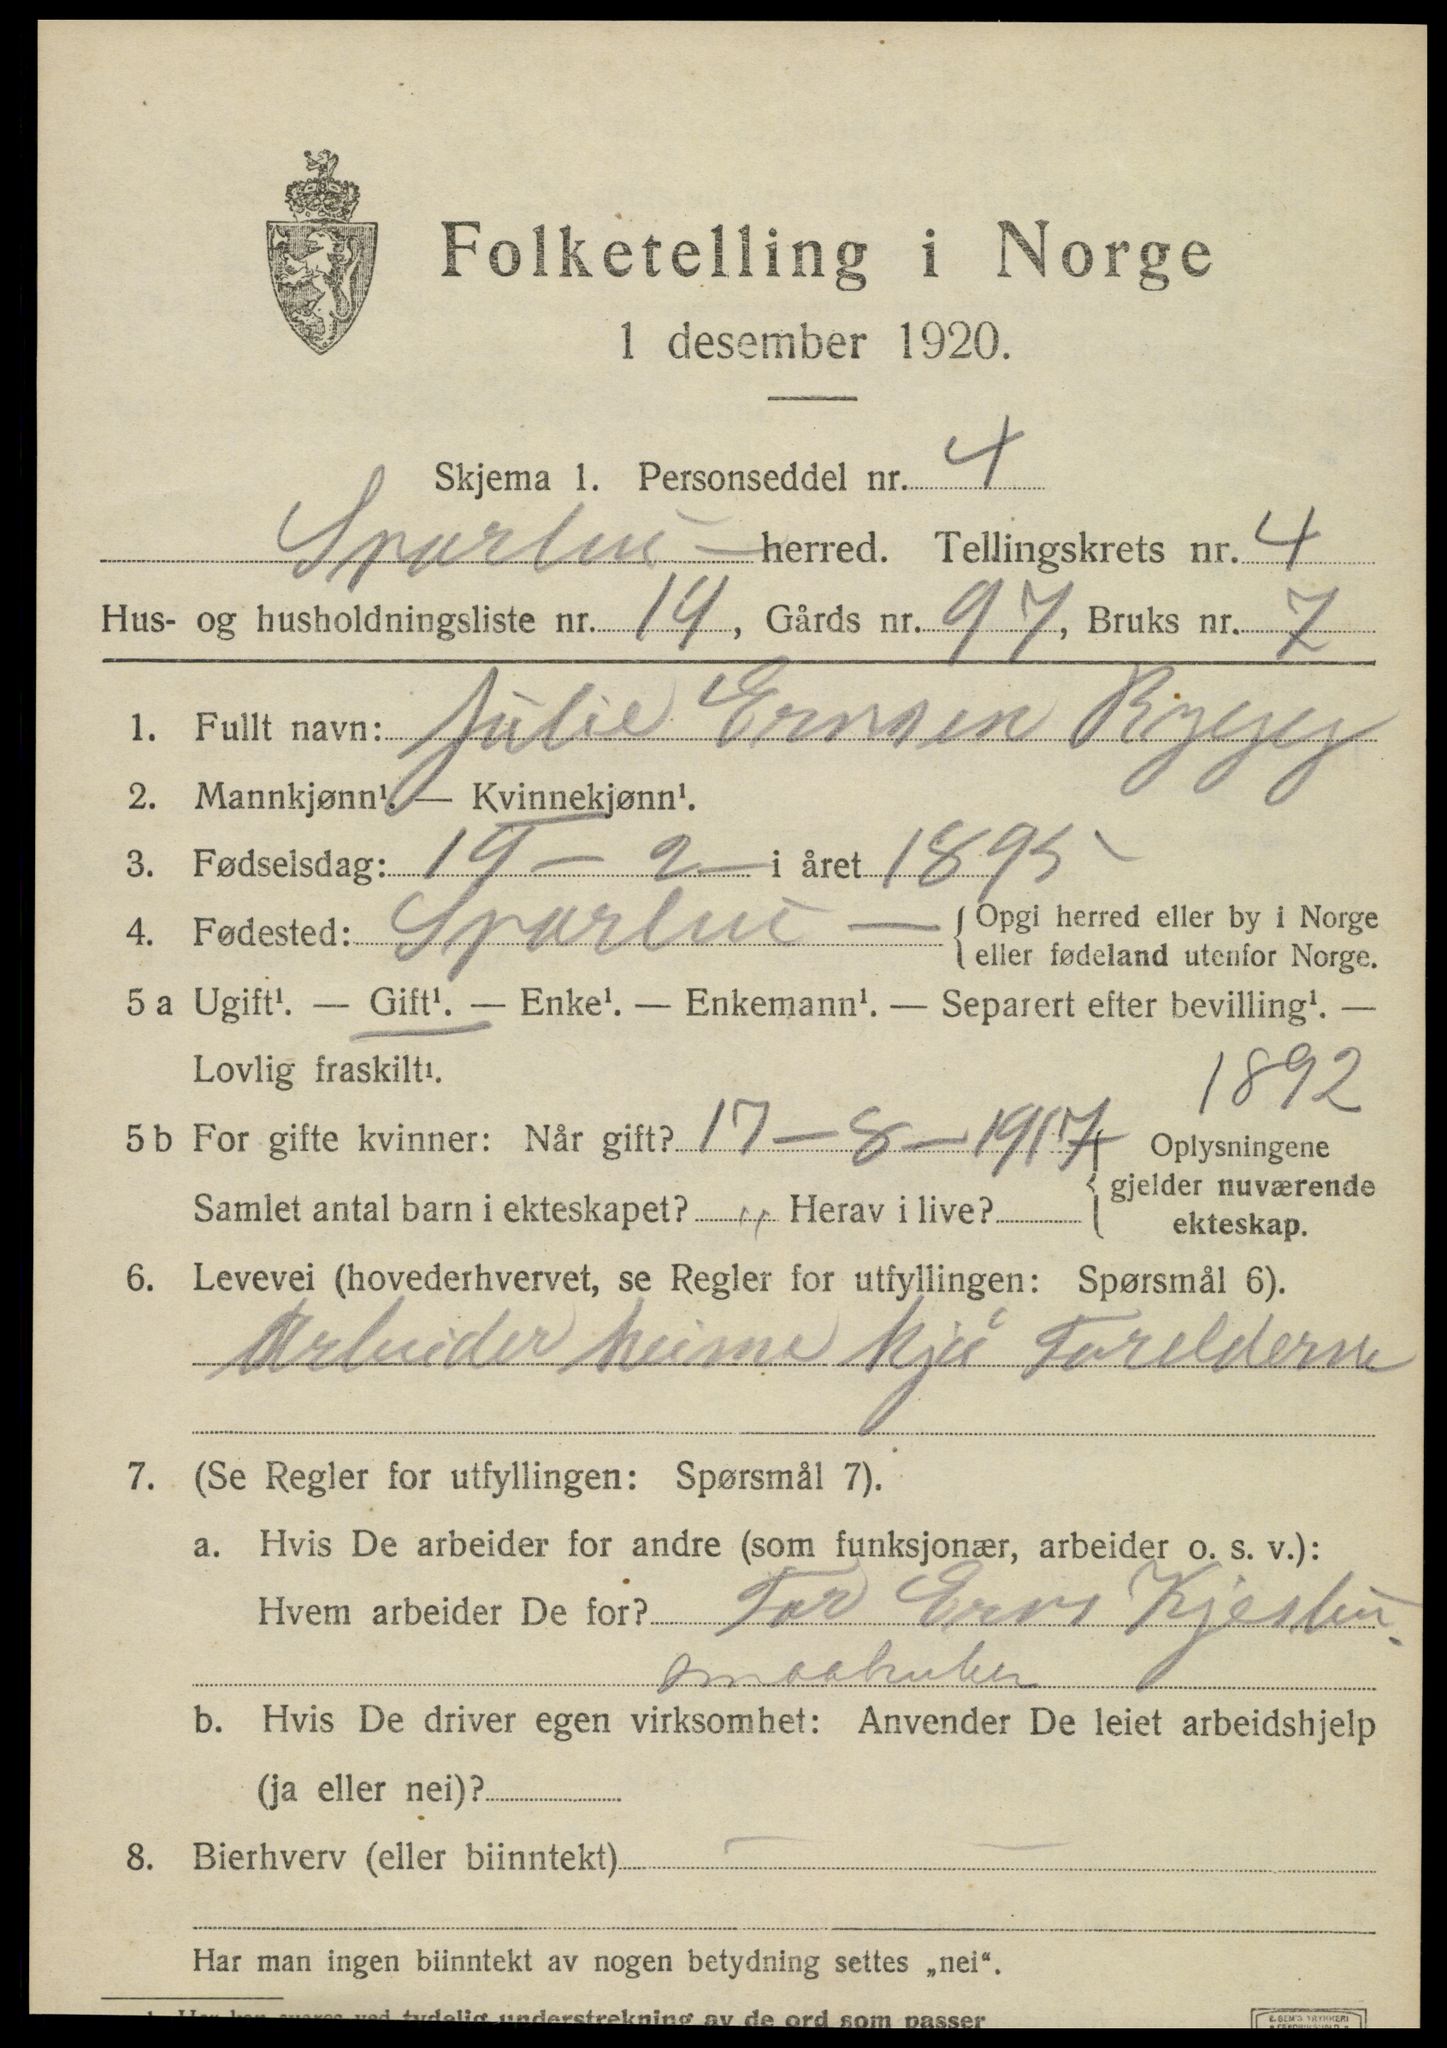 Folketelling i Norge
1 desember 1920.
Skjema 1. Personseddel nr. 4
Sparbu herred. Tellingskrets nr. 4
Hus- og husholdningsliste nr. 14, Gårds nr. 97, Bruks nr. 7
1. Fullt navn: Julie Ernsen Rygg
2. Mannkjønn¹. — Kvinnekjønn¹.
3. Fødselsdag: 19 - 2 - i året 1895
4. Fødested: Sparbu — { Opgi herred eller by i Norge
eller fødeland utenfor Norge.
5 a Ugift¹. — Gift¹. — Enke¹. — Enkemann¹. — Separert efter bevilling¹. —
Lovlig fraskilt¹.
1892
5 b For gifte kvinner: Når gift? 17 - 8 - 1917 { Oplysningene
gjelder nuværende
ekteskap.
Samlet antal barn i ekteskapet? „ Herav i live?
6. Levevei (hovederhvervet, se Regler for utfyllingen: Spørsmål 6).
Arbeider heime hjå Forelderne
7. (Se Regler for utfyllingen: Spørsmål 7).
a. Hvis De arbeider for andre (som funksjonær, arbeider o. s. v.):
Hvem arbeider De for? Far Erns
smaabruker
b. Hvis De driver egen virksomhet: Anvender De leiet arbeidshjelp
(ja eller nei)?
8. Bierhverv (eller biinntekt) — —
Har man ingen biinntekt av nogen betydning settes „nei“.
¹ Her kan svares ved tydelig understrekning av de ord som passer